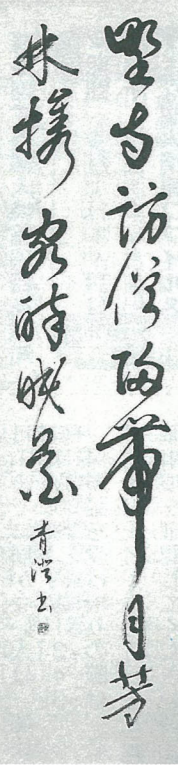 野寺訪僧歸帶月芳
林携客醉眠花 青澄書